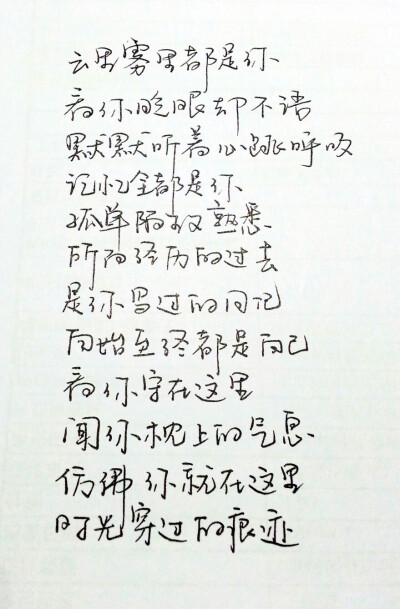 云里雾里都是你
看你眨眼却不语
默默听着心跳呼吸
记忆全都是你
孤单熟悉
所有经历的过去
是你写过的日记
自始至终都是自己
看你字在这里
闻你枕上的气息
仿佛你就在这里
时光穿过的痕迹